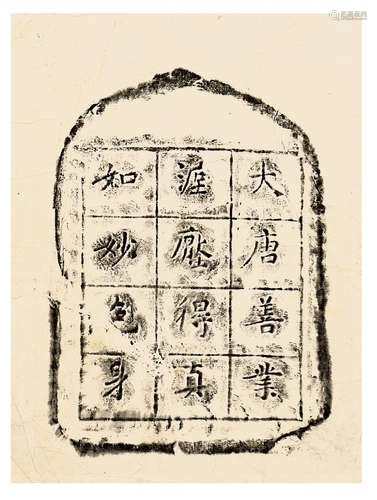 大唐善業
泥壓得真
如妙色身